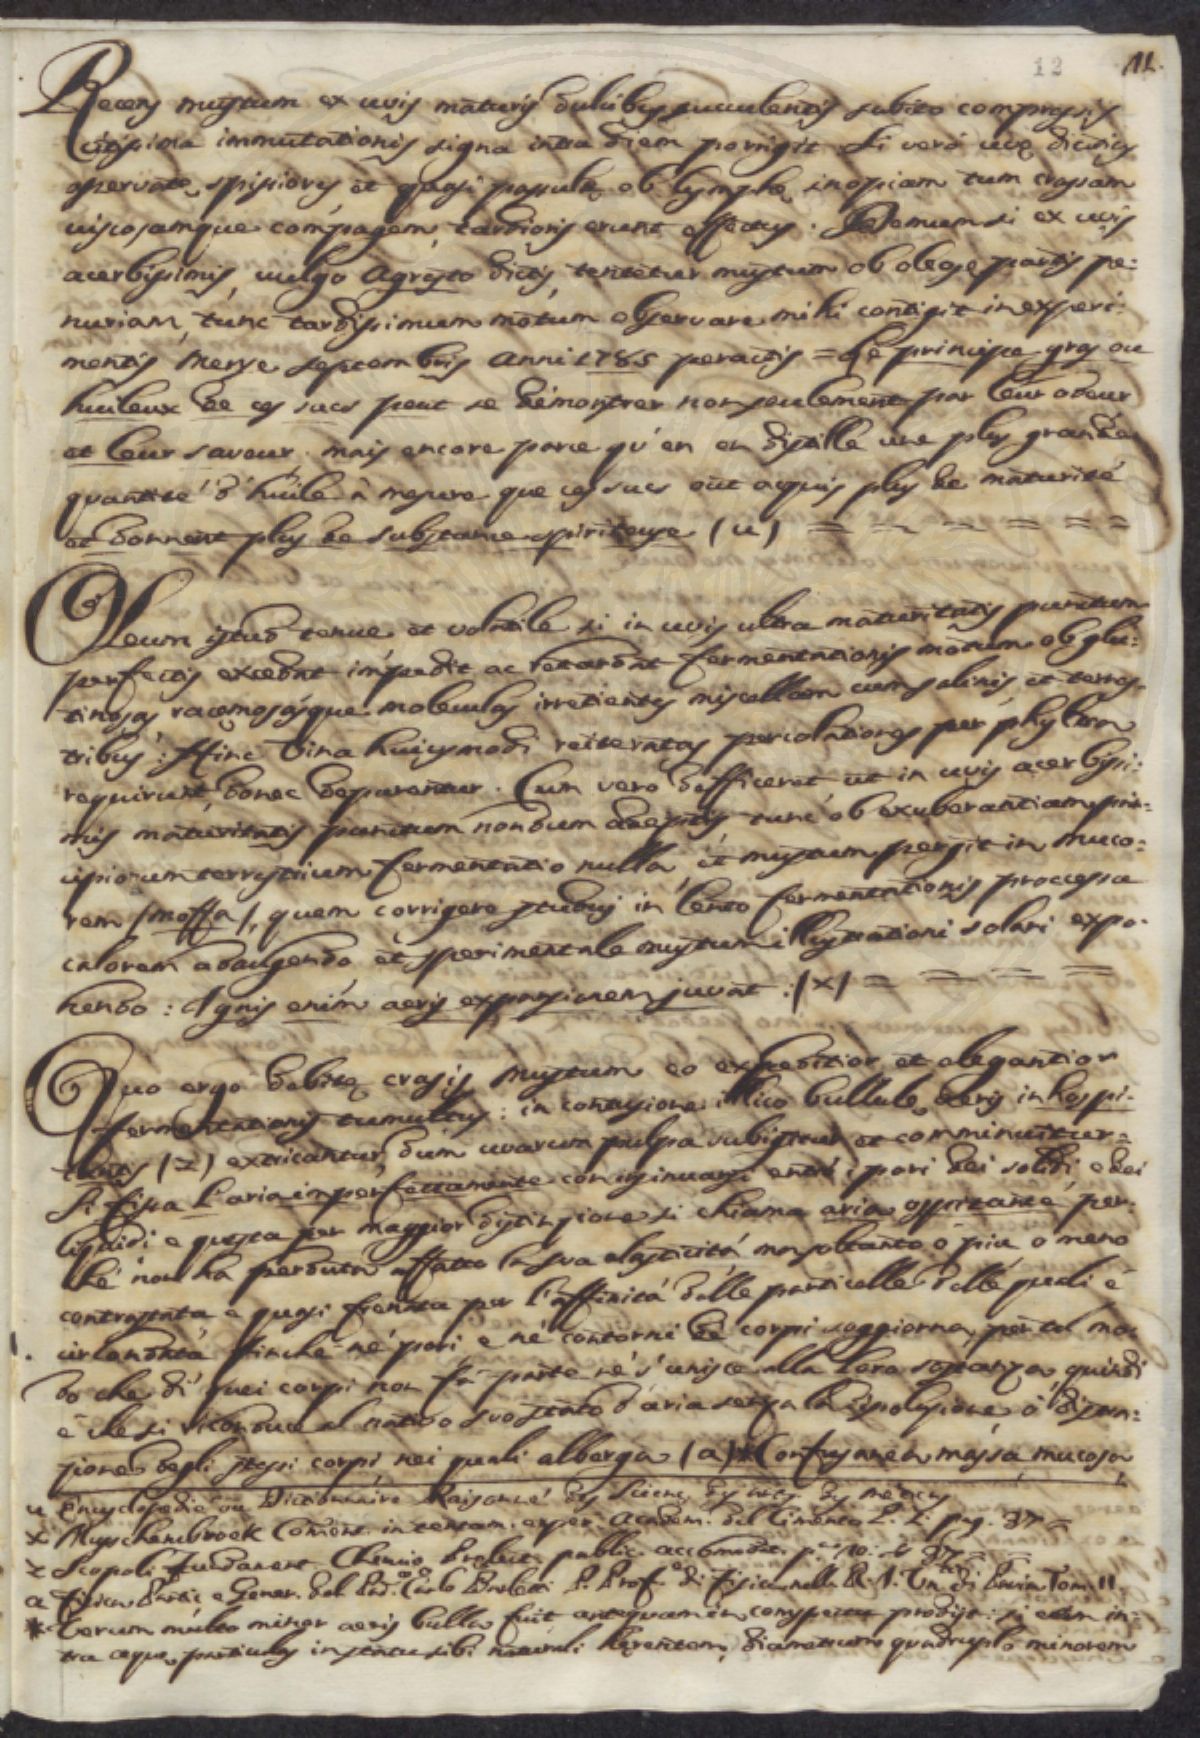 12 11.
Recens mustum ex uvis maturis dulcibus succulentis subito compressis
citissima immutationis signa intra diem porrigit Si verò uvę diutius
asservatę, spissiores et quasi passulę ob lymphę inopiam tum crassam
viscosamque compagem, tardioris erunt effectus. Demum si ex uvis
acerbissimis, vulgo Agresto dictis, tentetur mustum ob oleosę partis pe:
nuriam, tunc tardissimum motum observare mihi contigit in experi:
mentis Mense Septembris Anni 1785 peractis = Le principe gras ou
huileux de ces sucs peut se démontrer non seulement par leur odeur
et leur saveur mais encore parce qu'en en distille une plus grande
quantité d'huile à mesure que ces sucs ont acquis plus de maturité
et donnent plus de substance spiriteuse (u) = = = = = =
Oleum istud tenue et volatile si in uvis ultra maturitatis punctum
perfectis excedat impedit ac retardat fermentationis motum ob glu:
tinosas, racemosasque moleculas irretientes miscellam cum salinis et terres.
tribus: Hinc vina huiusmodi reiteratas percolationes per phyltra
requirunt donec depurentur. Cum vero defficeret, ut in uvis acerbissi:
mis maturitatis punctum nondum adeptis tunc ob exuberantiam prin:
cipiorum terrestrium fermentatio nulla, et mustum pergit in muco:
rem (moffa), quem corrigere studui in lento fermentationis processu
calorem adaugendo et sperimentale mustum illustrationi solari expo.
nendo: Ignis enim aeris expansionem juvat: (x) = = = =
Quo ergo debitę crasis mustum eo expeditior et elegantior
fermentationis tumultus: in contusione illico bullulę aeris inhospi.
tantis (z) extricantur, dum uvarum pulpa subigitur et comminuitur =
Si fissa l'aria imperfettamente con insinuarsi entro i pori dei solidi e dei
liquidi e questa per maggior distinzione si chiama aria ospitante, per:
chè non ha perduta affatto la sua elasticità ma soltanto o più o meno
contrastata e quasi frenata per l'affinità dalle particelle delle quali è
circondata finchè né pori, e né contorni de corpi soggiorna, per tal mo:
do che di quei corpi non fà parte nè s'unisce alla loro sostanza, quindi
è che si riconduce al nativo suo stato d'aria senza la risoluzione o disun:
zione degli stessi corpi nei quali alberga (a)* Confusanea massa mucosa
u Encyclopedie ou Dictionnaire Raisonné des Sciences des arts des metiers
x Musschembroek Coment. in tentam. exper. Academ. del Cimento P. 2. pag. 37 =
z Scopoli Fundament. Chemię prolect. public. accomodat. p. 10. § 37.
a Fisica Partic e Gener. del Pad. Carlo Barletti P. Prof. di Fisica nella R. I. Un. di Pavia Tom. II.
* Verum multo minor aeris bulla fuit antequam in conspectu prodijt: si enim in:
tra aquę particulas in statu sibi naturali hęrentem, diametrum quadruplo minorem